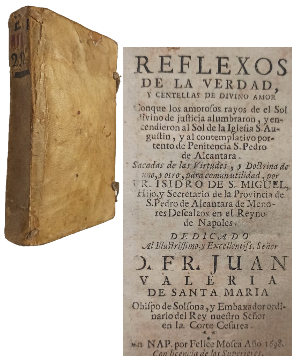 REFLEXOS
DE LA VERDAD,
Y CENTELLAS DE DIVINO AMOR
Conque los amorosos rayos de el Sol
divino de justicia alumbraron, y en-
cendieron al Sol de la Iglesia S. Au-
gustin, y al contemplativo por-
tento de Penitencia S. Pedro
de Alcantara.
Sacadas de las Virtudes, y Doctrina de
uno, y otro, para comun utilidad, por
FR. ISIDRO DE S. MIGUEL,
Hijo, y Secretario de la Provincia de
S. Pedro de Alcantara de Meno-
res Descalzos en el Reyno
de Napoles.
DEDICADO
Al Illustrissimo, y Excellentiss. Señor
D. FR. JUAN
VALERIA
DE SANTA MARIA
Obispo de Solsona, y Embaxador ordi-
nario del Rey nuestro Señor
en la Corte Cesarea.
En NAP. por Felice Mosca Año 1698.
Con licencia de los Superiores.